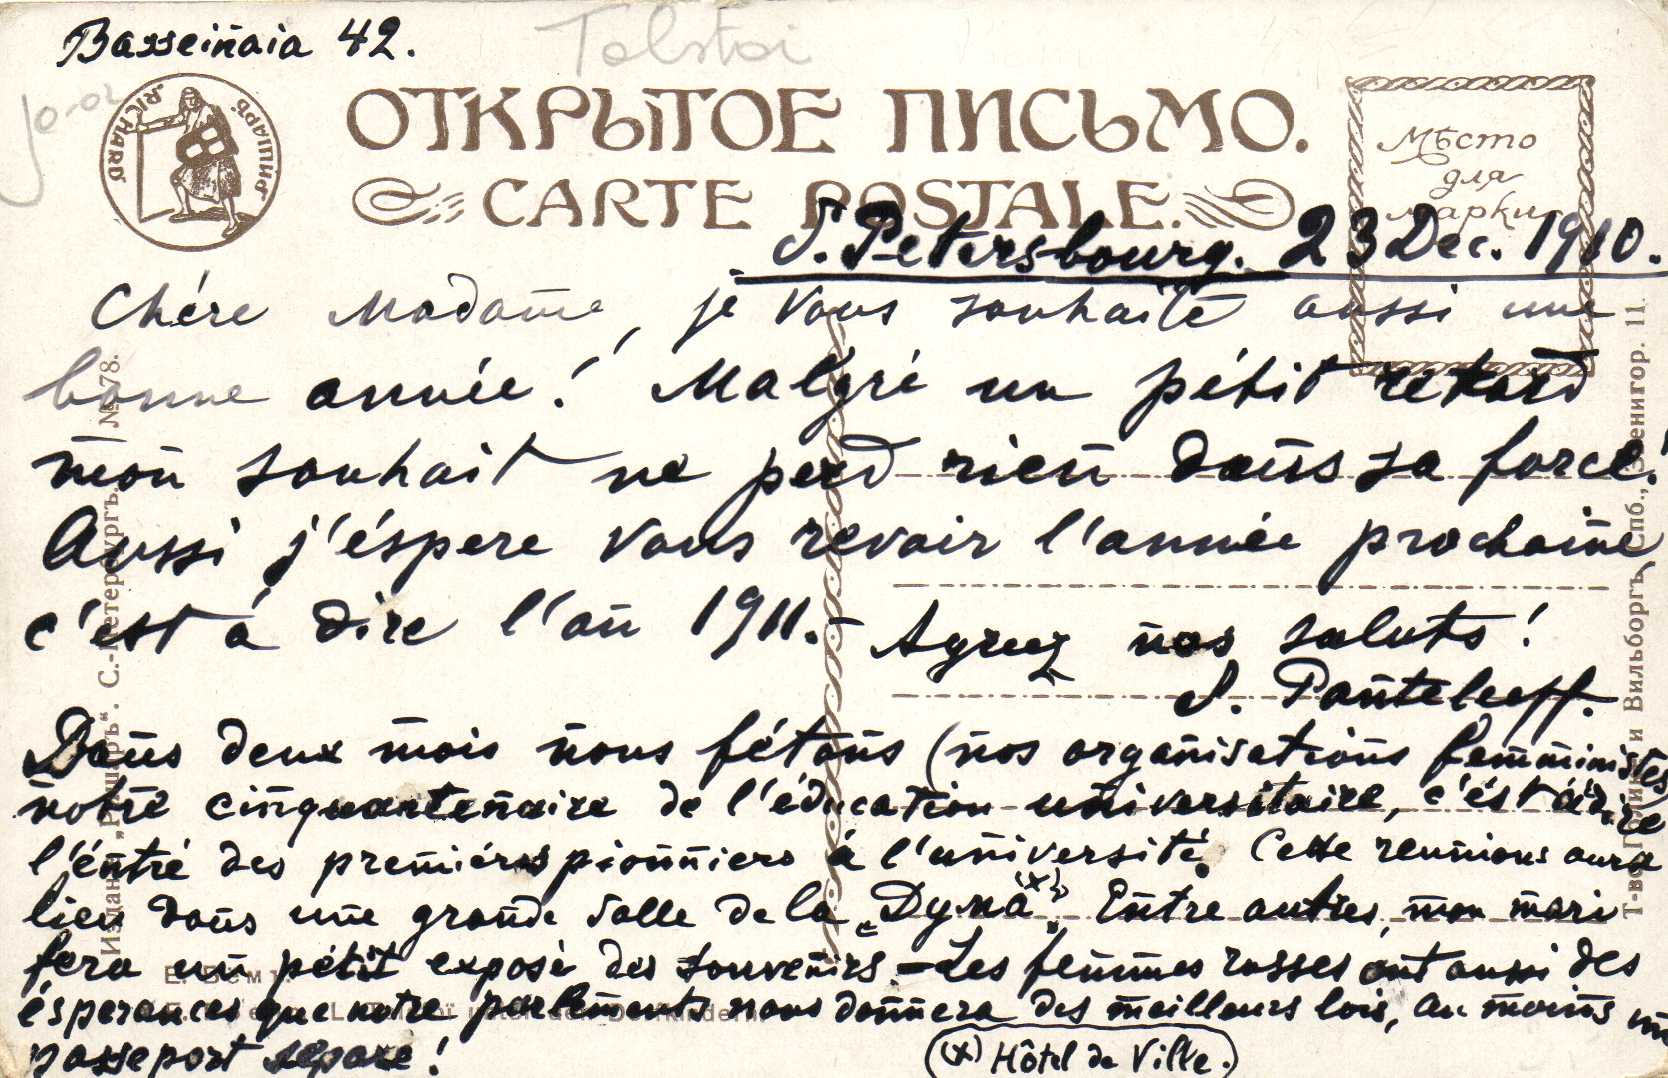 Basseinaia 42.
Tolstoi
"RICHARD"
"РИШАРЪ"
ОТКРЫТОЕ ПИСЬМО.
CARTE POSTALE.
Мѣсто
для
марки
S. Petersbourg. 23 Dec. 1910.
Chére Madame, je vous souhaite aussi une
bonne année! Malgré un pétit retard
mon souhait ne perd rien dans sa force!
Aussi j'éspere vous revoir l'année prochaine
c'est á dire l'an 1911. –
Agreez nos saluts!
S. Panteleeff.
Dans deux mois nous fétons (nos organisations femministes
notre cinquantenaire de l'éducation universitaire, c'ést á dire
l'éntré des premiéres pionniers á l'université. Cette reunions aura
lieu dans une grande salle de la „Dyma" (x). Entre autres, mon mari
fera un pétit exposé des souvenirs. – Les femmes russes ont aussi des
ésperances que notre parlements nous donnera des meilleurs lois, au moins un
passeport séparé!
(x) Hôtel de Ville.
Издан. „Ришаръ". С.-Петербургъ. № 78.
Т-во Голике и Вильборгъ, Спб., Звенигор. 11